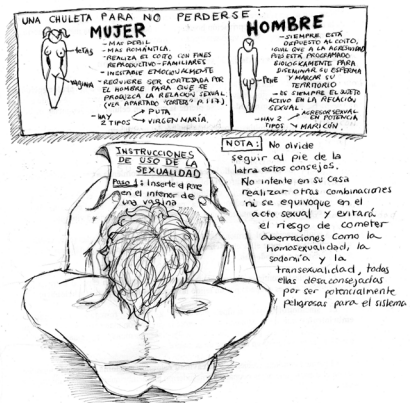 UNA CHULETA PARA NO PERDERSE:
MUJER
tetas
vagina
- MÁS DEBIL
- MÁS ROMÁNTICA.
- REALIZA EL COITO CON FINES
REPRODUCTIVO-FAMILIARES
- INESTABLE EMOCIONALMENTE
- REQUIERE SER CORTEJADA POR
EL HOMBRE PARA QUE SE
PRODUZCA LA RELACIÓN SEXUAL
(VER APARTADO "CORTEJO" P.117)
- HAY
2 TIPOS
PUTA
VIRGEN MARÍA.
HOMBRE
PENE
- SIEMPRE ESTÁ
DISPUESTO AL COITO,
IGUAL QUE A LA AGRESIVIDAD
PUES ESTÁ PROGRAMADO
BIOLÓGICAMENTE PARA
DISEMINAR SU ESPERMA
Y MARCAR SU
TERRITORIO
- ES SIEMPRE EL SUJETO
ACTIVO EN LA RELACIÓN
SEXUAL
- HAY 2
TIPOS
AGRESOR SEXUAL
EN POTENCIA
MARICÓN.
INSTRUCCIONES
DE USO DE LA
SEXUALIDAD
Paso 1: Inserte el pene
en el interior de
una vagina
NOTA: No olvide
seguir al pie de la
letra estos consejos.
No intente en su casa
realizar otras combinaciones
ni se equivoque en el
acto sexual y evitará
el riesgo de cometer
aberraciones como la
homosexualidad, la
sodomía y la
transexualidad, todas
ellas desaconsejadas
por ser potencialmente
peligrosas para el sistema